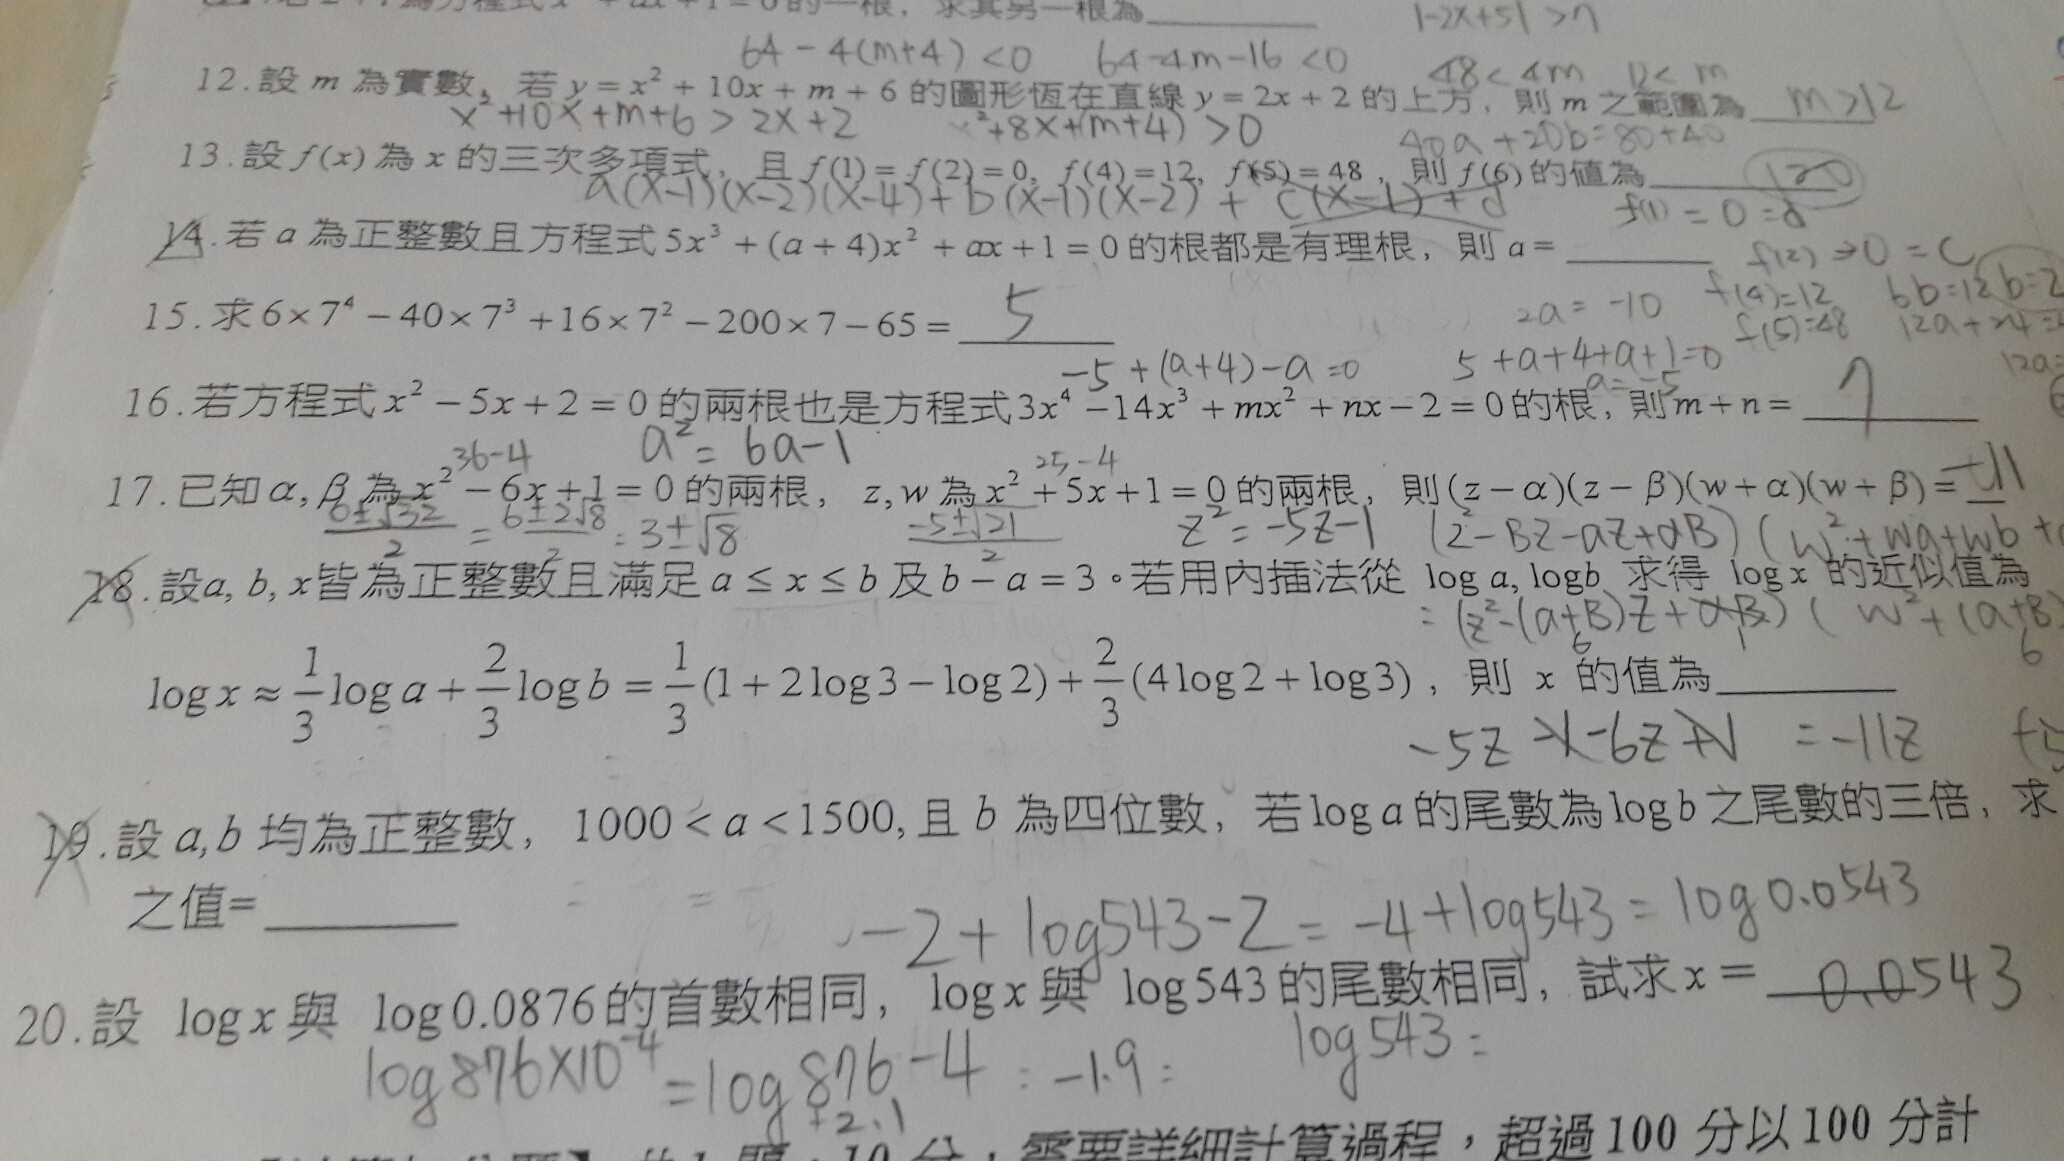 |-2x+5| >7
64-4(m+4)<0 64-4m-16<0 48<4m 12<m
12.設 m 為實數，若 y=x²+10x+m+6 的圖形恆在直線 y=2x+2 的上方，則 m 之範圍為 m>12
x²+10x+m+6>2x+2 x²+8x+(m+4)>0
40a+20b=80+40
13.設 f(x) 為 x 的三次多項式，且 f(1)=f(2)=0, f(4)=12, f(5)=48，則 f(6) 的值為 120
a(x-1)(x-2)(x-4)+b(x-1)(x-2)+c(x-1)+d f(1)=0=d
14.若 a 為正整數且方程式 5x³+(a+4)x²+ax+1=0 的根都是有理根，則 a=
f(2)⇒0=c
15.求 6×7⁴-40×7³+16×7²-200×7-65= 5
2a=-10 f(4)=12 6b=12 b=2
f(5)=48 12a+24=
-5+(a+4)-a=0 5+a+4+a+1=0 12a=
a=-5
16.若方程式 x²-5x+2=0 的兩根也是方程式 3x⁴-14x³+mx²+nx-2=0 的根，則 m+n= 7
36-4 a²=6a-1 25-4
17.已知 α, β 為 x²-6x+1=0 的兩根，z, w 為 x²+5x+1=0 的兩根，則 (z-α)(z-β)(w+α)(w+β)= -11
(6±√32)/2 = (6±2√8)/2 = 3±√8 (-5±√21)/2 z²=-5z-1 (z²-Bz-az+αB)(w²+wa+wb+
18.設a, b, x皆為正整數且滿足 a≤x≤b 及 b-a=3。若用內插法從 log a, log b 求得 log x 的近似值為
=(z²-(a+B)z+αB)(w²+(a+B)
6 1 6
log x ≈ 1/3 log a + 2/3 log b = 1/3 (1+2log3-log2)+ 2/3 (4log2+log3)，則 x 的值為
-5z-1-6z+1 =-11z
19.設 a,b 均為正整數，1000<a<1500, 且 b 為四位數，若 log a 的尾數為 log b 之尾數的三倍，求
之值=
-2+log543-2=-4+log543=log0.0543
20.設 log x 與 log 0.0876 的首數相同，log x 與 log 543 的尾數相同，試求 x= 0.0543
log876×10⁻⁴=log876-4 = -1.9= log543=
+2.1
分，需要詳細計算過程，超過100 分以100 分計